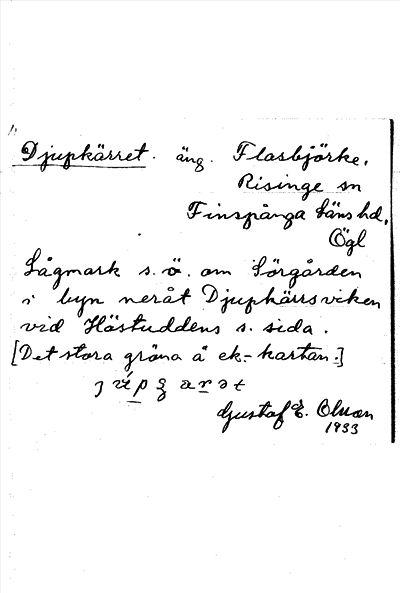 Djupkärret. äng. Flasbjörke,
Risinge sn
Finspånga läns hd,
Ögl
Lågmark s. ö. om Sörgården
i byn neråt Djupkärrsviken
vid Hästuddens s. sida.
[Det stora gröna å ek.-kartan.]
Gustaf E. Olson
1933